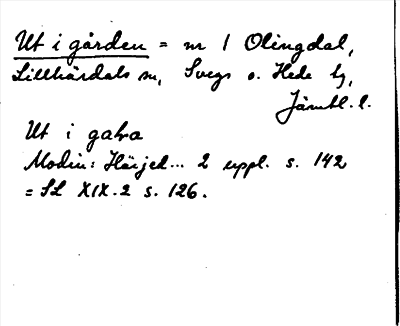 Ut i gården = nr 1 Olingdal,
Lillhärdals sn, Svegs o. Hede tg,
Jämtl. l.
Ut i galva
Modin: Härjed... 2 uppl. s. 142
= SL XIX.2 s. 126.